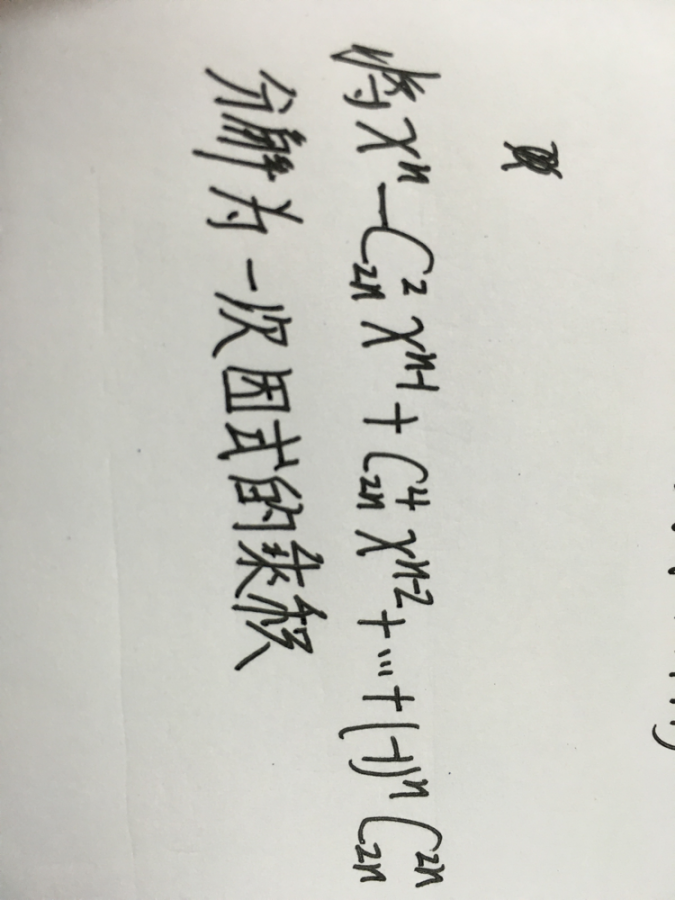 将 xⁿ - C²₂ₙ xⁿ⁻¹ + C⁴₂ₙ xⁿ⁻² + ... + (-1)ⁿ C²ⁿ₂ₙ
分解为一次因式的乘积